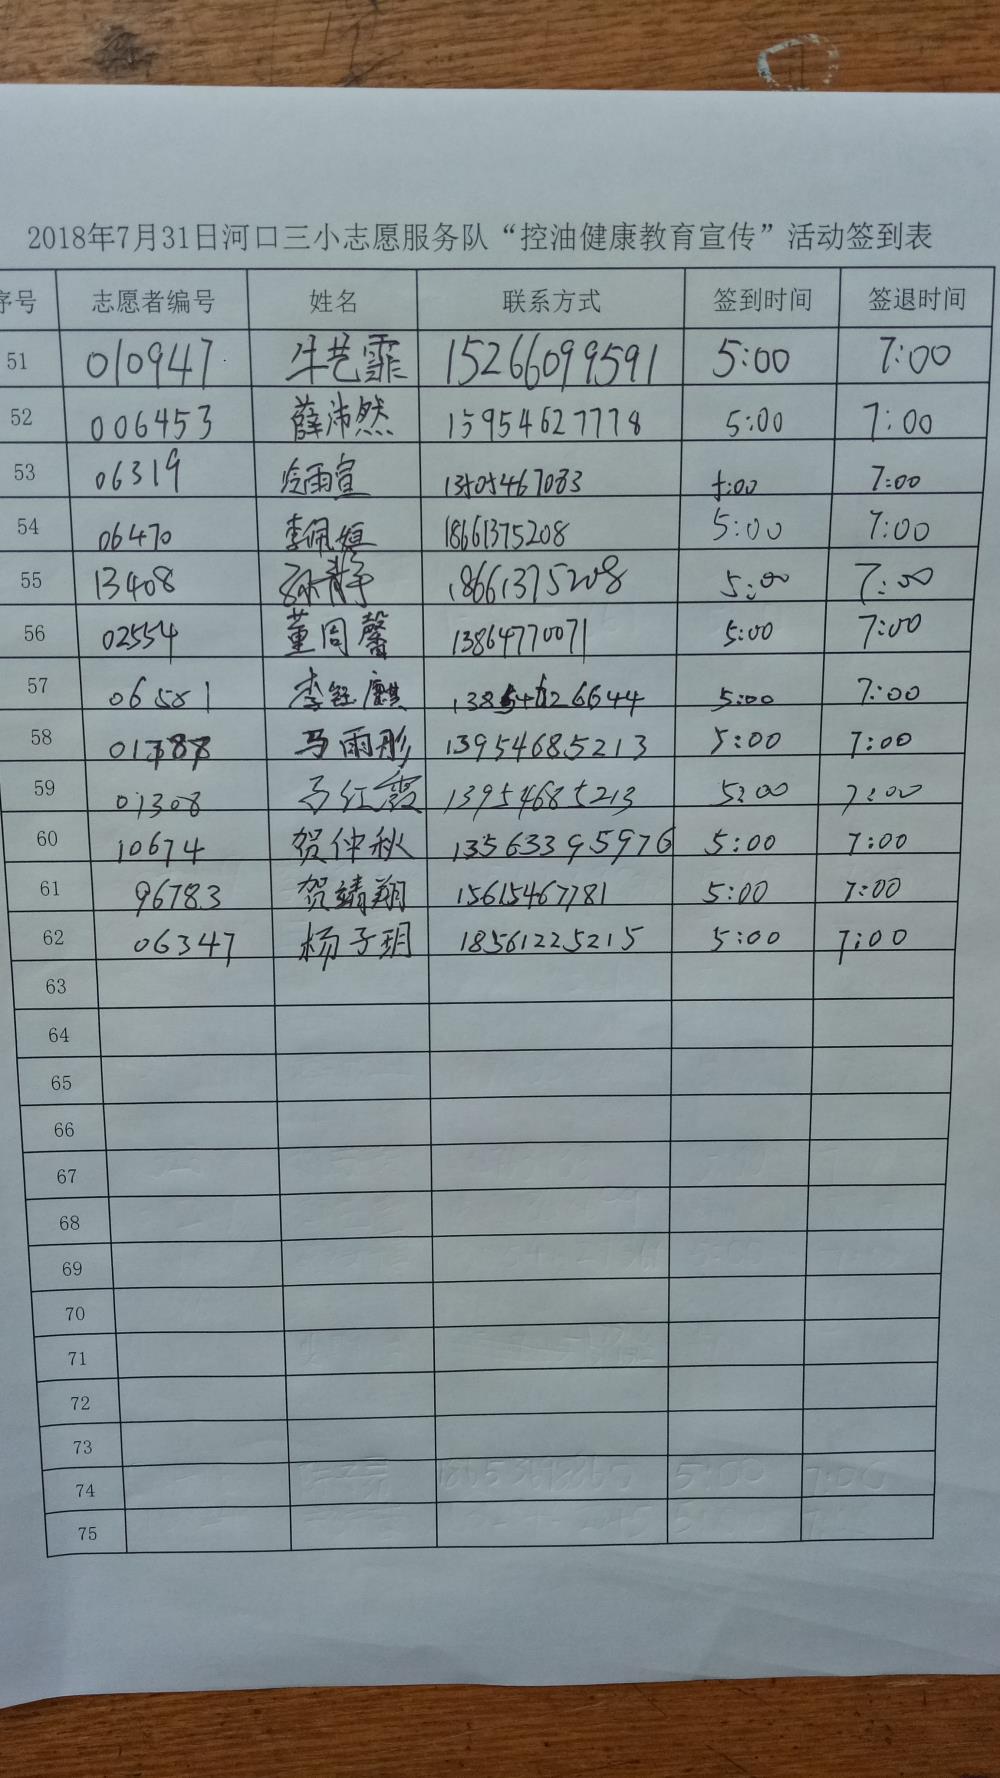 2018年7月31日河口三小志愿服务队“控油健康教育宣传”活动签到表
序号 志愿者编号 姓名 联系方式 签到时间 签退时间
51 010947 牛艺霏 15266099591 5:00 7:00
52 006453 薛沛然 15954627778 5:00 7:00
53 06319 冷雨宣 13505467083 5:00 7:00
54 06470 李佩姮 18661375208 5:00 7:00
55 13408 孙静 18661375208 5:00 7:00
56 02554 董同馨 13864770071 5:00 7:00
57 06581 李钰麒 13854626644 5:00 7:00
58 01388 马雨彤 13954685213 5:00 7:00
59 01308 马红霞 13954685213 5:00 7:00
60 10674 贺仲秋 13563395976 5:00 7:00
61 96783 贺靖翔 15615467781 5:00 7:00
62 06347 杨子玥 18561225215 5:00 7:00
63
64
65
66
67
68
69
70
71
72
73
74
75